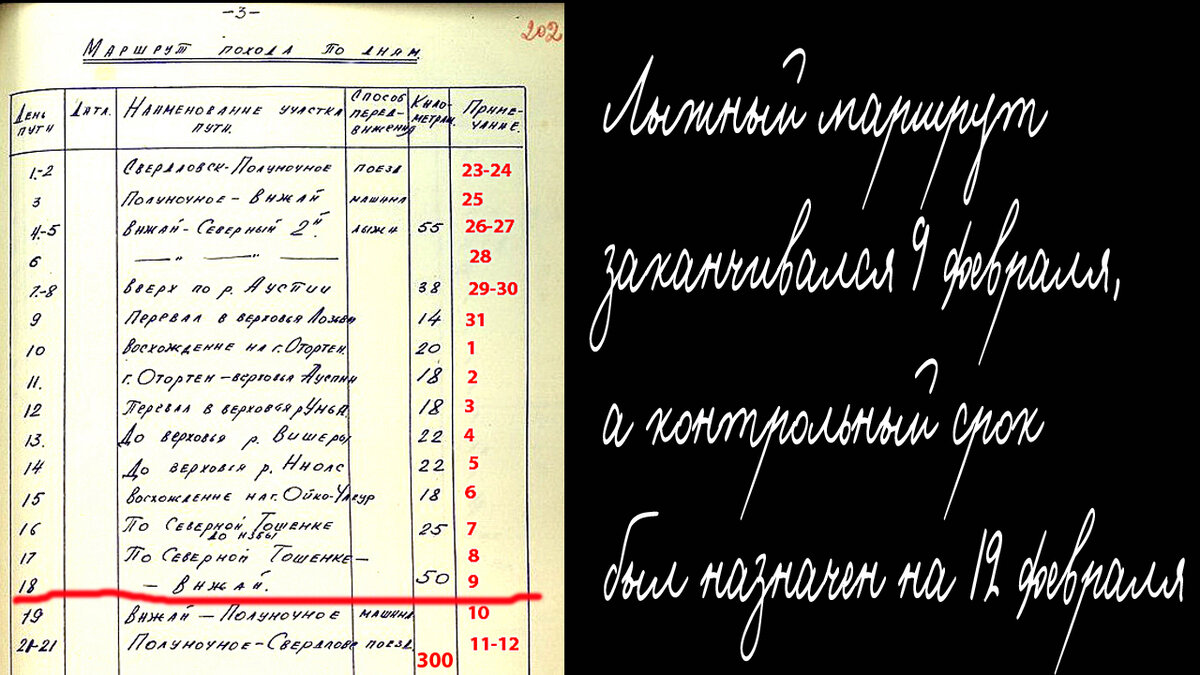 —3—
202
МАРШРУТ ПОХОДА ПО ДНЯМ.
ДЕНЬ ПУТИ ДАТА. НАИМЕНОВАНИЕ УЧАСТКА ПУТИ. СПОСОБ ПЕРЕД-ВИЖЕНИЯ КИЛО-МЕТРАЖ. ПРИМЕ-ЧАНИЕ.
1.-2 СВЕРДЛОВСК-ПОЛУНОЧНОЕ ПОЕЗД 23-24
3 ПОЛУНОЧНОЕ - ВИЖАЙ МАШИНА 25
4.-5 ВИЖАЙ-СЕВЕРНЫЙ 2й. ЛЫЖИ 55 26-27
6 —— " —— " —— 28
7.-8 ВВЕРХ ПО Р. АУСПИИ 38 29-30
9 ПЕРЕВАЛ В ВЕРХОВЬЯ ЛОЗЬВЫ 14 31
10 ВОСХОЖДЕНИЕ НА Г. ОТОРТЕН. 20 1
11. Г. ОТОРТЕН - ВЕРХОВЬЯ АУСПИИ 18 2
12 ПЕРЕВАЛ В ВЕРХОВЬЯ Р. УНЬИ. 18 3
13. ДО ВЕРХОВЬЯ Р. ВИШЕРЫ 22 4
14 ДО ВЕРХОВЬЯ Р. НИОЛС 22 5
15 ВОСХОЖДЕНИЕ НА Г. ОЙКО-ЧАКУР 18 6
16 ПО СЕВЕРНОЙ ТОШЕМКЕ ДО ИЗБЫ 25 7
17 ПО СЕВЕРНОЙ ТОШЕМКЕ — 8
18 — ВИЖАЙ. 50 9
19 ВИЖАЙ — ПОЛУНОЧНОЕ МАШИНА 10
20-21 ПОЛУНОЧНОЕ-СВЕРДЛОВС ПОЕЗД. 11-12
300
Лыжный маршрут
заканчивался 9 февраля,
а контрольный срок
был назначен на 12 февраля